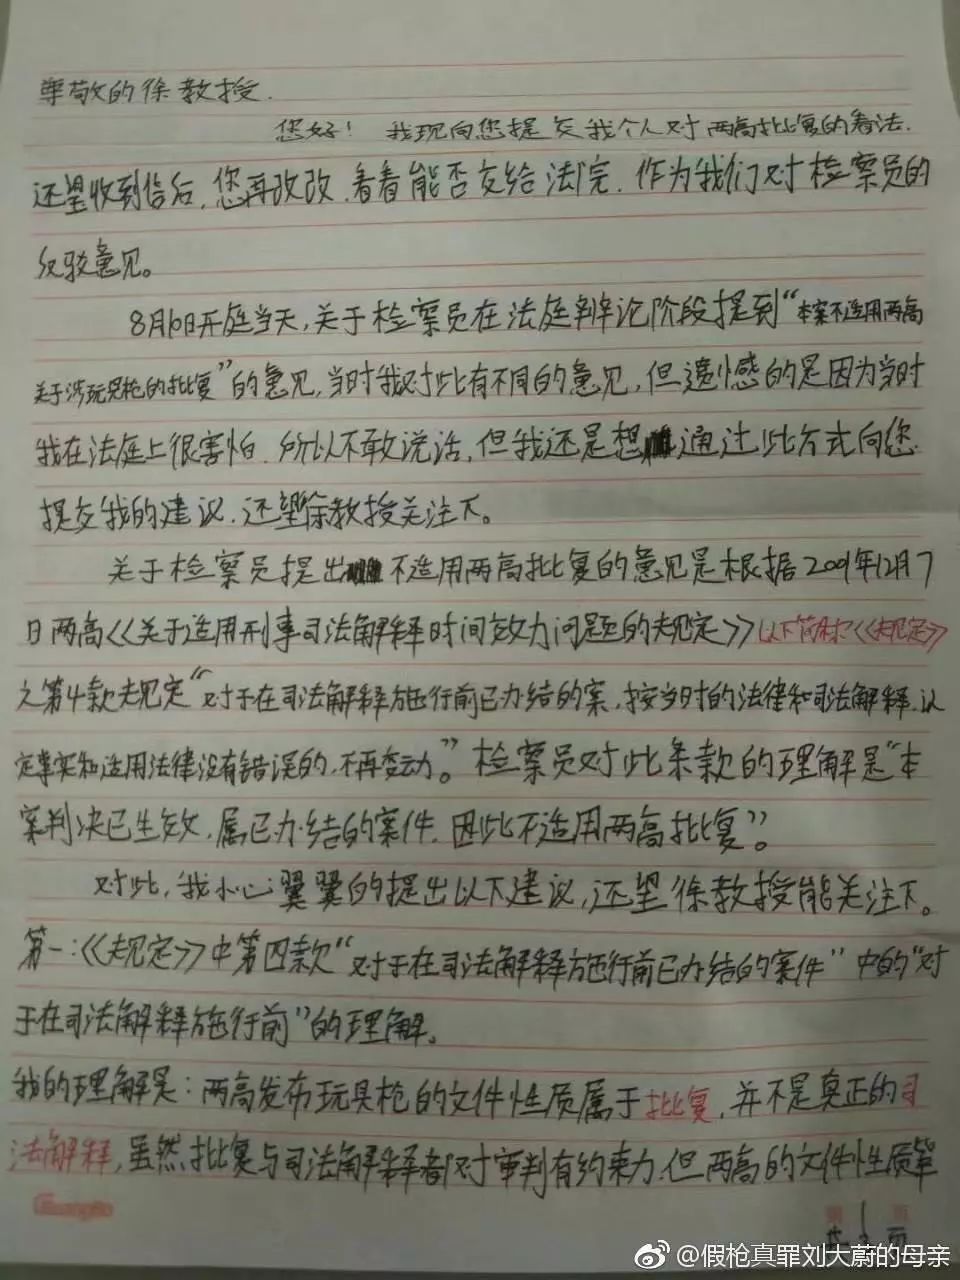 尊敬的徐教授.
您好！ 我现向您提交我个人对两高批复的看法.
还望收到信后,您再改改,看看能否交给法院.作为我们对检察员的
反驳意见。
8月10日开庭当天,关于检察员在法庭辩论阶段提到“本案不适用两高
关于涉玩具枪的批复”的意见,当时我对此有不同的意见,但遗憾的是因为当时
我在法庭上很害怕.所以不敢说话,但我还是想通过此方式向您
提交我的建议.还望徐教授关注下。
关于检察员提出不适用两高批复的意见是根据2001年12月7
日两高《关于适用刑事司法解释时间效力问题的规定》以下简称《规定》
之第4款规定“对于在司法解释施行前已办结的案,按当时的法律和司法解释,认
定事实和适用法律没有错误的,不再变动。”检察员对此条款的理解是“本
案判决已生效,属已办结的案件.因此不适用两高批复”。
对此,我小心翼翼的提出以下建议,还望徐教授能关注下。
第一:《规定》中第四款“对于在司法解释施行前已办结的案件”中的“对
于在司法解释施行前”的理解.
我的理解是:两高发布玩具枪的文件性质属于批复,并不是真正的司
法解释,虽然,批复与司法解释都对审判有约束力.但两高的文件性质
Guangbo
第1页
共 页
@假枪真罪刘大蔚的母亲